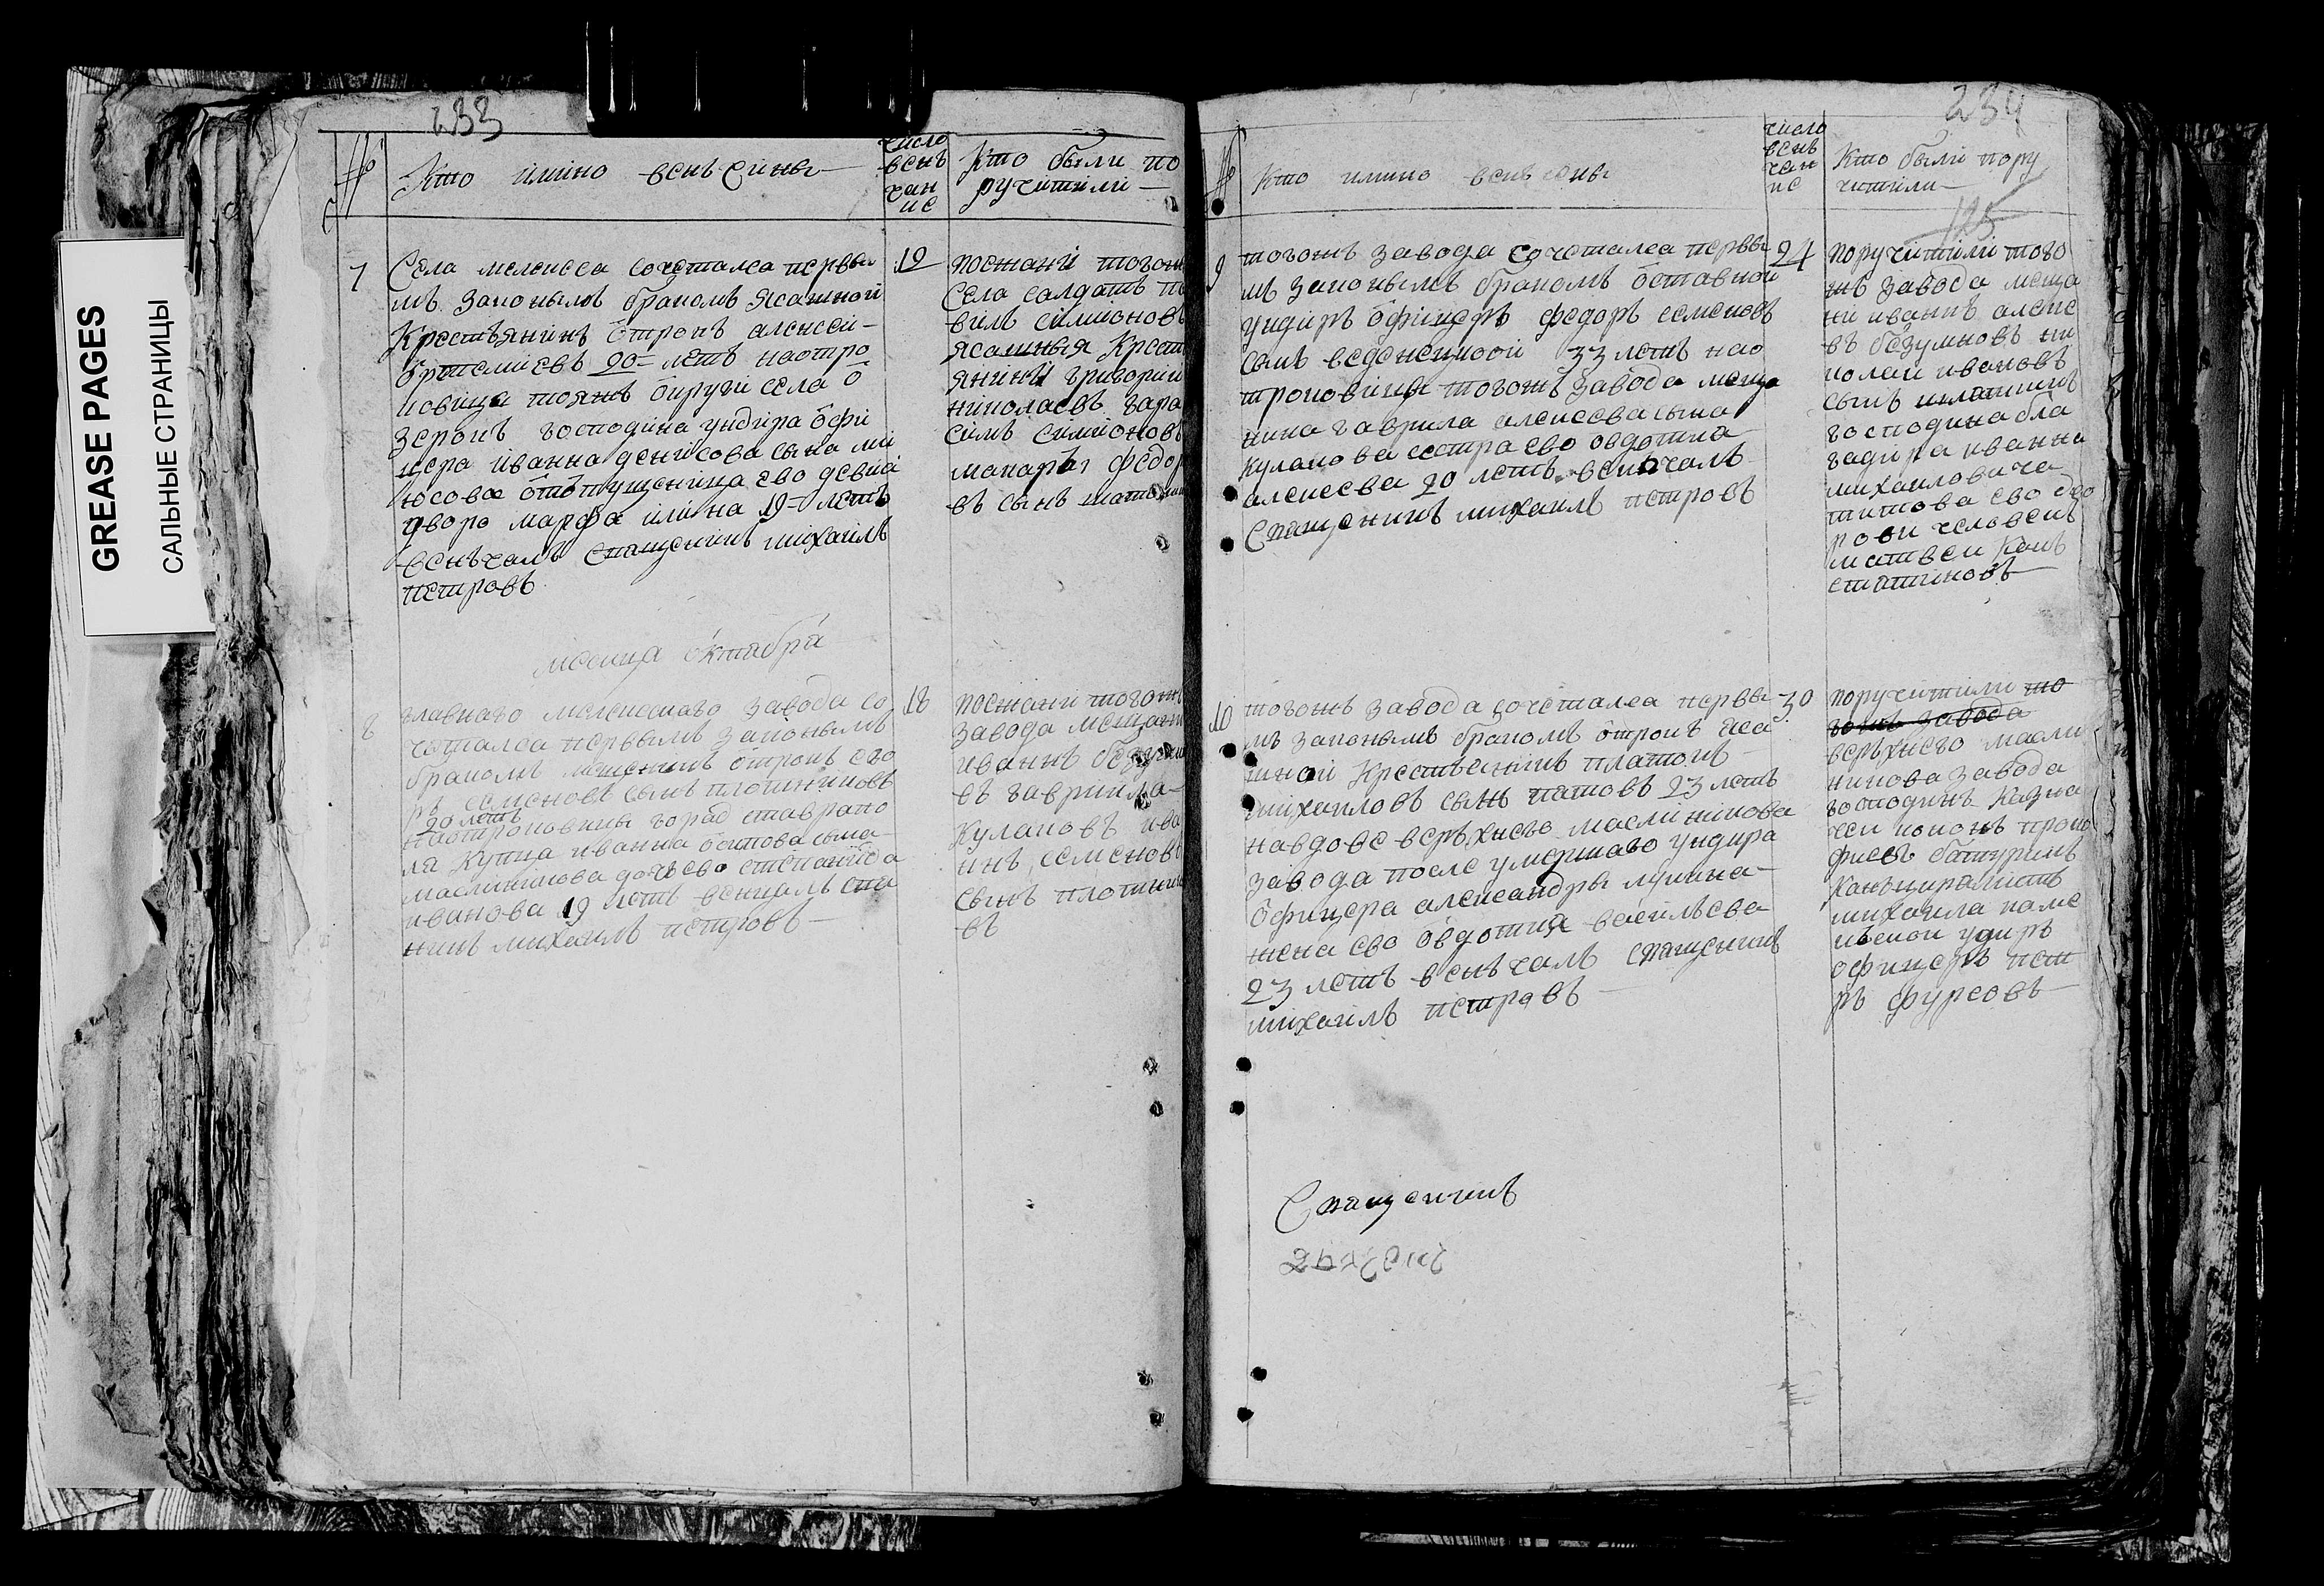 GREASE PAGES
САЛЬНЫЕ СТРАНИЦЫ
233
№
Кто имяно венъчины
число
венъ
чан
ия
Кто были по
ручители
7
Села мелекеса сочеталса первы
мъ законымъ бракомъ Ясашной
Крестьянинъ отрокъ алексей
20 летъ наотро
ковица тояжъ округи села о
зерокъ господина ундира офи
цера иванна денисова сына ми
ево девка
двора марфа 19 летъ
венъчалъ свещеникъ михаилъ
петровъ
12
поежани тогож
Села салдатъ
симионовъ
ясашныя Крест
янини григории
николаевъ гара
симъ симионовъ
макаръ федор
въ сынъ
месица октабря
8
главнаго мелекескаго завода со
четалса первымъ законымъ
бракомъ мещенинъ отрокъ его
ръ семеновъ сынъ плотниковъ
20 летъ
наотроковицы горад ставрапо
ля Купца иванна сына
маслиникова дочъ ево степанида
иванова 19 летъ венчалъ све
никъ михаилъ петровъ
18
поежани тогожъ
завода мещани
иваннъ безумно
въ гаврила
Кулаковъ ива
нъ семеновъ
сынъ плотнико
въ
234
№
Кто имяно венъчаны
число
венъ
чан
ия
Кто были пору
чители
125
9
тогожъ завода сочеталса первы
мъ законымъ бракомъ оставной
ундиръ офицеръ федоръ семеновъ
сынъ 33 летъ нао
троковицы тогожъ завода меща
нина гаврила алексеева сына
кулакова сестра ево овдотиа
алексеева 20 летъ венчалъ
Свещеникъ михаилъ петровъ
24
поручители того
жъ завода меща
ни иванъ алекс
въ безумновъ ни
колаи ивановъ
сынъ
господина бла
гадира иванна
михаиловича
титова ево дво
рови человекъ
матвеи Конъ
стантиновъ
10
тогожъ завода сочеталса первы
мъ законымъ бракомъ отрокъ яса
шной Крестьенинъ платонъ
михаиловъ сынъ 23 летъ
навдове веръхнего маслиникова
завода после умершаго ундира
офицера александры лукина
жена ево овдотиа васильева
23 летъ венъчалъ свещеникъ
михаилъ петровъ
30
поручители то
гожъ завода
веръхнего масли
никова завода
господинъ казна
чеи проко
фиевъ батуринъ
Канъцилристъ
михаила
ундиръ
офицеръ пет
ръ фурсовъ
Свещеникъ